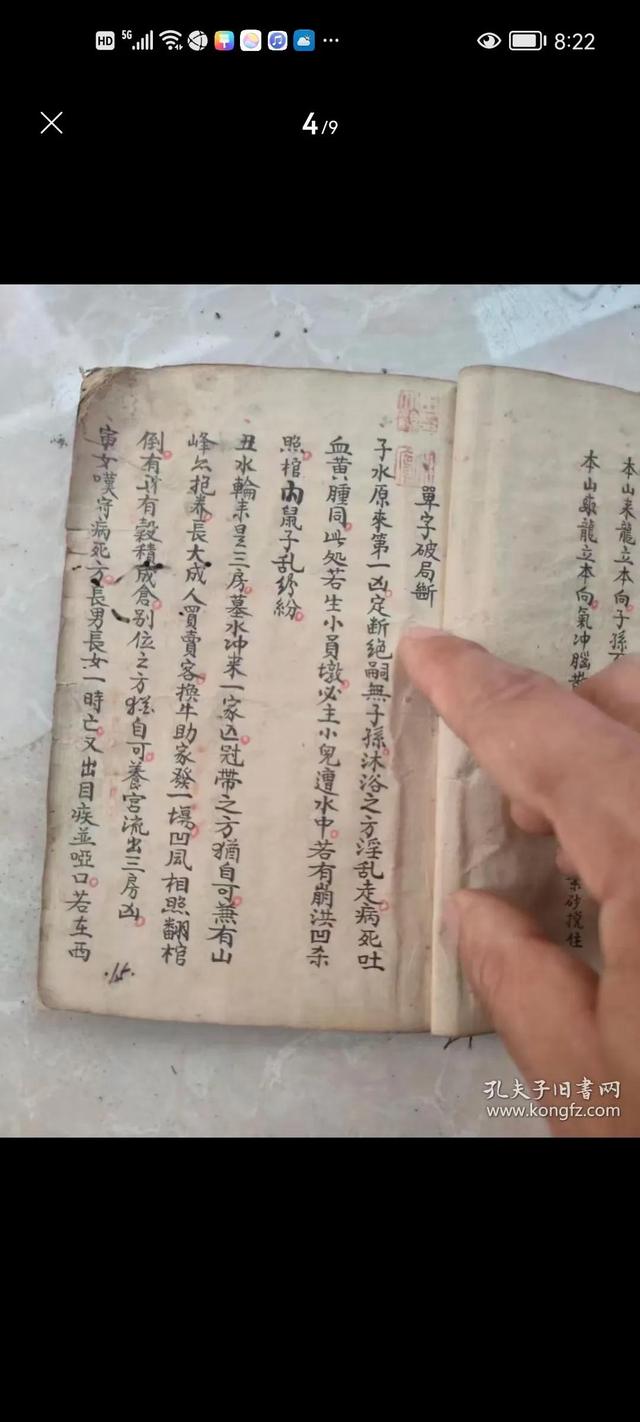 HD 5G 8:22
4/9
本山来龍立本向子孫
本山來龍立本向氣冲腦
砂攪住
單字破局斷
子水原來第一凶定断絕嗣無子孫沐浴之方淫乱走病死吐
血黄腫同此処若生小員墩必主小兒遭水中若有崩洪凹杀
照棺内鼠子乱纷紛
丑水輪来是三房墓水冲来一家凶冠帶之方猶自可兼有山
峰去抱养長大成人買賣客换牛助家發一塲凹風相照翻棺
倒有谷有穀積成倉别位之方猶自可養宫流出三房凶
寅女嘆守病死方長男長女一時亡又出目疾並啞口若在西
孔夫子旧书网
www.kongfz.com